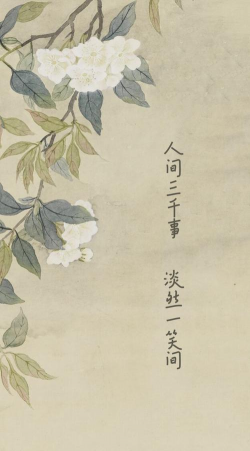 人间三千事 淡然一笑间